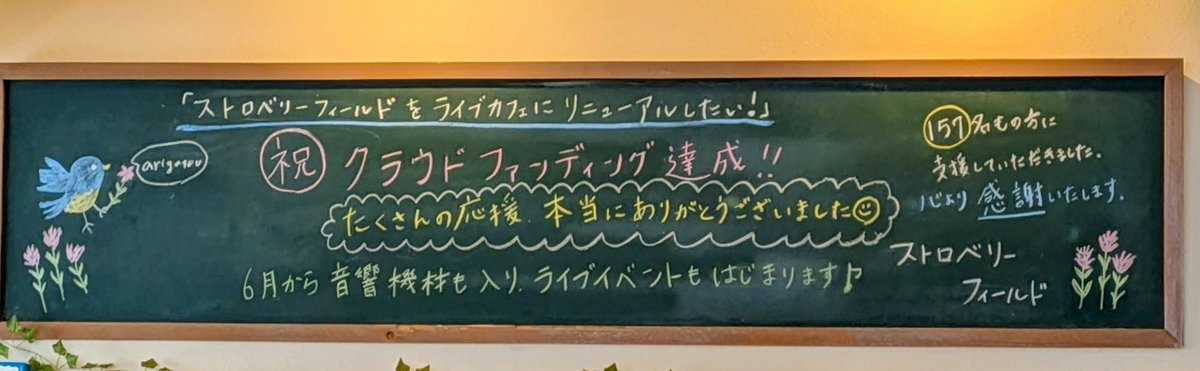 「ストロベリーフィールドをライブカフェにリニューアルしたい!」
祝 クラウドファンディング達成!!
たくさんの応援、本当にありがとうございました☺
6月から音響機材も入り、ライブイベントもはじまります♪
arigatou
157名もの方に
支援していただきました。
心より感謝いたします。
ストロベリー
フィールド